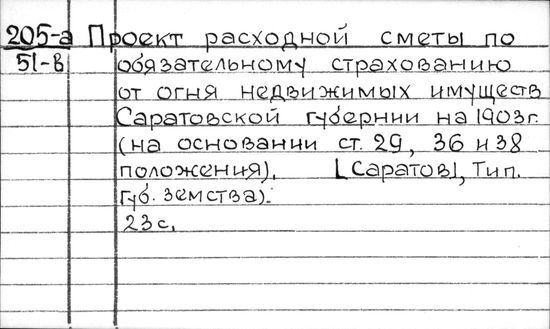 205-а Проект расходной сметы по
51-в обязательному страхованию
от огня недвижимых имуществ
Саратовской губернии на 1903г.
(на основании ст. 29, 36 и 38
положения). [Саратов], Тип.
губ. земства).
23 с.